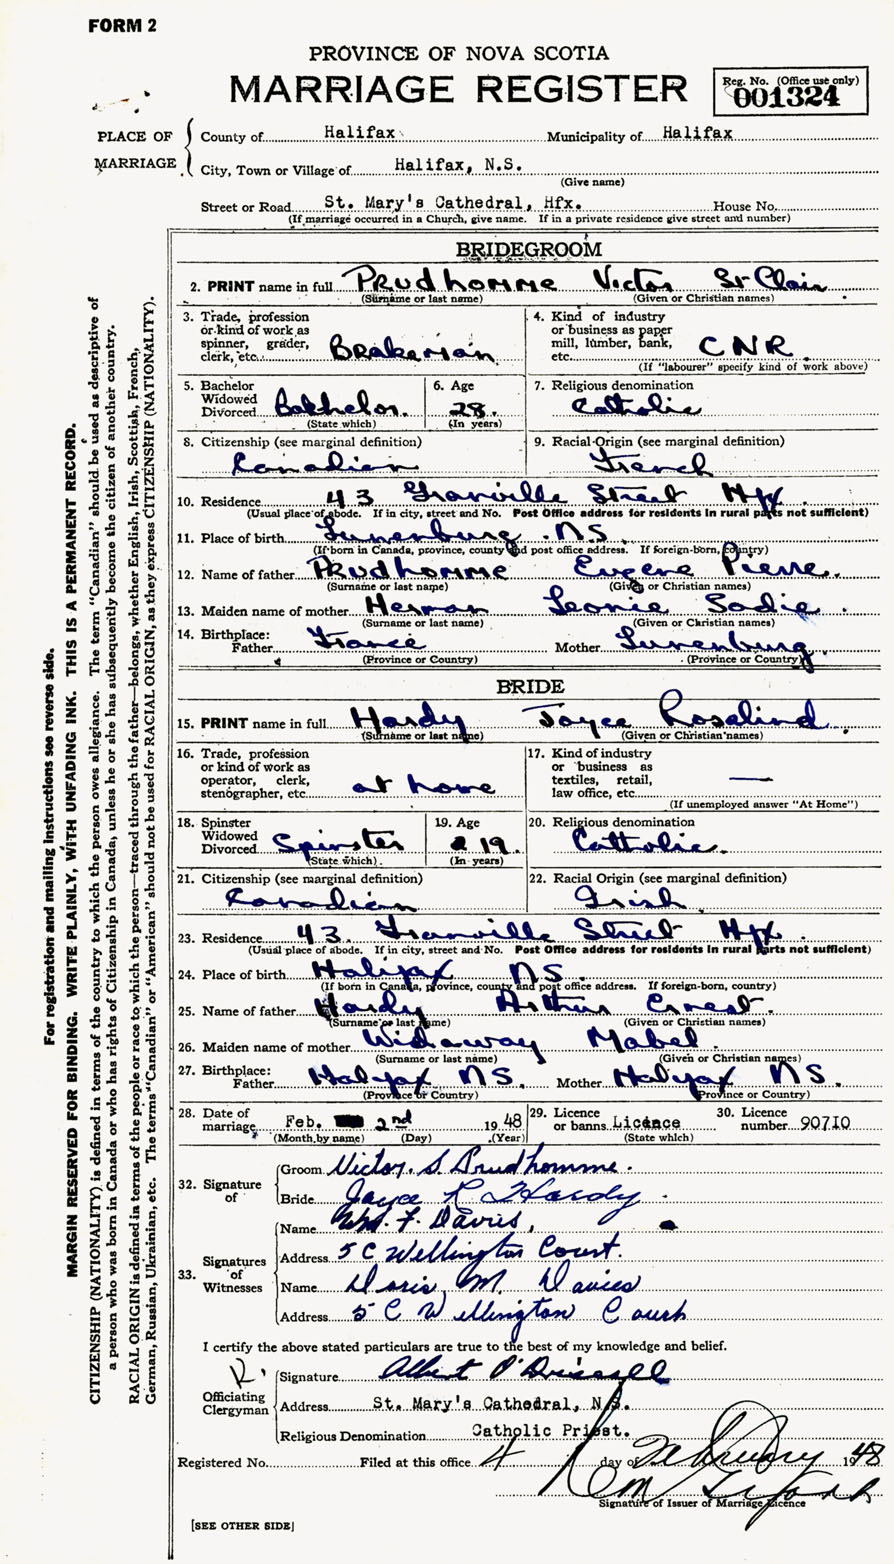 FORM 2
PROVINCE OF NOVA SCOTIA
MARRIAGE REGISTER
Reg. No. (Office use only)
001324
PLACE OF MARRIAGE
County of Halifax Municipality of Halifax
City, Town or Village of Halifax, N.S.
(Give name)
Street or Road St. Mary's Cathedral, Hfx. House No.
(If marriage occurred in a Church, give name. If in a private residence give street and number)
BRIDEGROOM
2. PRINT name in full Prudhomme Victor St Clair
(Surname or last name) (Given or Christian names)
3. Trade, profession or kind of work as spinner, grader, clerk, etc. Brakeman
4. Kind of industry or business as paper mill, lumber, bank, etc. CNR
(If "labourer" specify kind of work above)
5. Bachelor Widowed Divorced Bachelor.
(State which)
6. Age 28.
(In years)
7. Religious denomination Catholic
8. Citizenship (see marginal definition) Canadian
9. Racial Origin (see marginal definition) French
10. Residence 43 Granville Street Hfx
(Usual place of abode. If in city, street and No. Post Office address for residents in rural parts not sufficient)
11. Place of birth Lunenburg. NS
(If born in Canada, province, county and post office address. If foreign-born, country)
12. Name of father Prudhomme Eugene Pierre.
(Surname or last name) (Given or Christian names)
13. Maiden name of mother Herman Leonie Sadie.
(Surname or last name) (Given or Christian names)
14. Birthplace: Father France Mother Lunenburg
(Province or Country) (Province or Country)
BRIDE
15. PRINT name in full Hardy Joyce Rosalind
(Surname or last name) (Given or Christian names)
16. Trade, profession or kind of work as operator, clerk, stenographer, etc. at home
17. Kind of industry or business as textiles, retail, law office, etc. —
(If unemployed answer "At Home")
18. Spinster Widowed Divorced Spinster
(State which)
19. Age 19.
(In years)
20. Religious denomination Catholic.
21. Citizenship (see marginal definition) Canadian
22. Racial Origin (see marginal definition) Irish
23. Residence 43. Granville Street Hfx
(Usual place of abode. If in city, street and No. Post Office address for residents in rural parts not sufficient)
24. Place of birth Halifax NS.
(If born in Canada, province, county and post office address. If foreign-born, country)
25. Name of father Hardy Arthur Ernest.
(Surname or last name) (Given or Christian names)
26. Maiden name of mother Mabel.
(Surname or last name) (Given or Christian names)
27. Birthplace: Father Halifax NS. Mother Halifax NS.
(Province or Country) (Province or Country)
28. Date of marriage Feb. 2nd 1948
(Month by name) (Day) (Year)
29. Licence or banns Licence
(State which)
30. Licence number 90710
32. Signature of
Groom Victor. S Prudhomme.
Bride Joyce R Hardy.
33. Signatures of Witnesses
Name Wm. F. Davies,
Address 5 C Wellington Court.
Name Doris M. Davies
Address 5 C Wellington Court
I certify the above stated particulars are true to the best of my knowledge and belief.
Officiating Clergyman
Signature Albert O'Driscoll
Address St. Mary's Cathedral, N.S.
Religious Denomination Catholic Priest.
Registered No. Filed at this office 4 day of February 1948
Signature of Issuer of Marriage Licence
[SEE OTHER SIDE]
For registration and mailing instructions see reverse side.
MARGIN RESERVED FOR BINDING. WRITE PLAINLY, WITH UNFADING INK. THIS IS A PERMANENT RECORD.
CITIZENSHIP (NATIONALITY) is defined in terms of the country to which the person owes allegiance. The term "Canadian" should be used as descriptive of
a person who was born in Canada or who has rights of Citizenship in Canada, unless he or she has subsequently become the citizen of another country.
RACIAL ORIGIN is defined in terms of the people or race to which the person—traced through the father—belongs, whether English, Irish, Scottish, French,
German, Russian, Ukrainian, etc. The terms "Canadian" or "American" should not be used for RACIAL ORIGIN, as they express CITIZENSHIP (NATIONALITY).